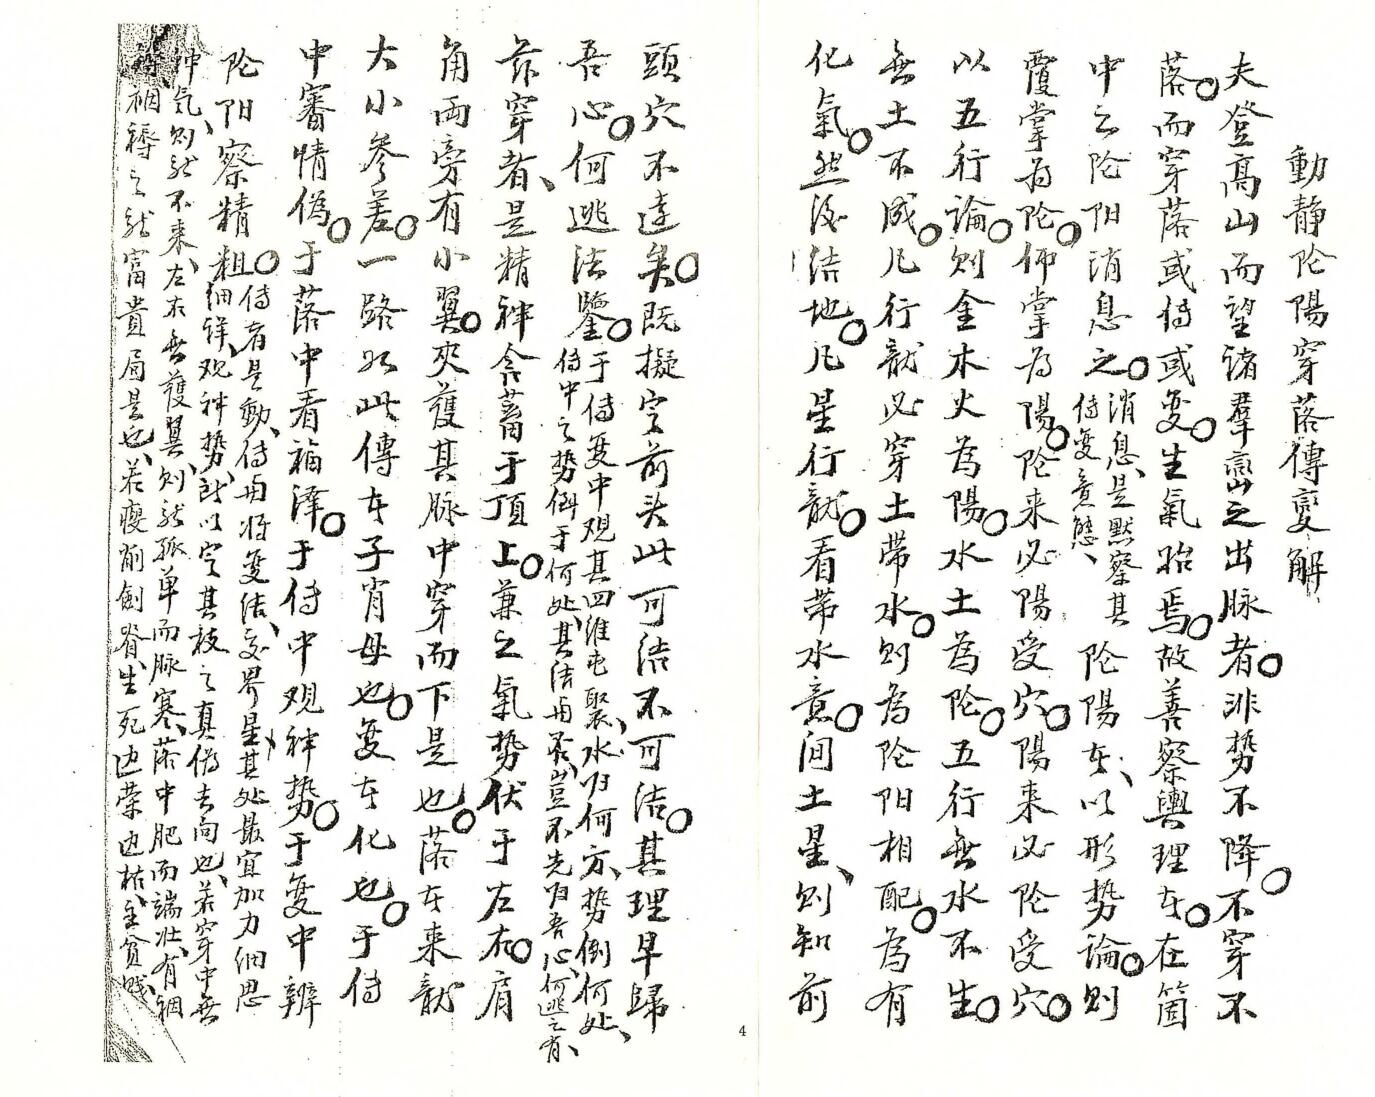 動静阴陽穿落傳变解
夫登高山而望诸羣巒之出脉者非势不降不穿不
落而穿落或傳或变生氣胎焉故善察輿理在在箇
中云阴阳消息之消息是默察其傳变意態阴陽在以形势論则
覆掌为阴仰掌为陽阴来必陽受穴陽来必阴受穴
以五行論则金木火為陽水土為阴五行無水不生
無土不成凡行龍必穿土带水则為阴阳相配為有
化氣然後结地凡星行龍看带水意间土星则知前
頭穴不遠矣既擬定前头此可结不可结其理早歸
吾心何逃法鑒于傳变中观其四维屯聚水归何方势倒何处傳中之势倒于何处其结用否豈不先归吾心何逃之有
前穿者是精神含蓄于頂上兼之氣势伏于左右肩
角両旁有小翼夾護其脉中穿而下是也落在来龍
大小参差一路如此傳在子肖母也变在化也于傳
中審情偽于落中看福泽于傳中观神势于变中辨
阴阳察精粗傳者是動傳用将变结交界星其处最宜加力細思
細詳观神势所以定其枝之真偽去向也若穿中無
冲氣则龍不来左右無護翼则龍孤单而脉寒落中肥而端壮有裀
裀褥之龍富貴局是也若瘦削劍脊生死边荣边枯主貧贱